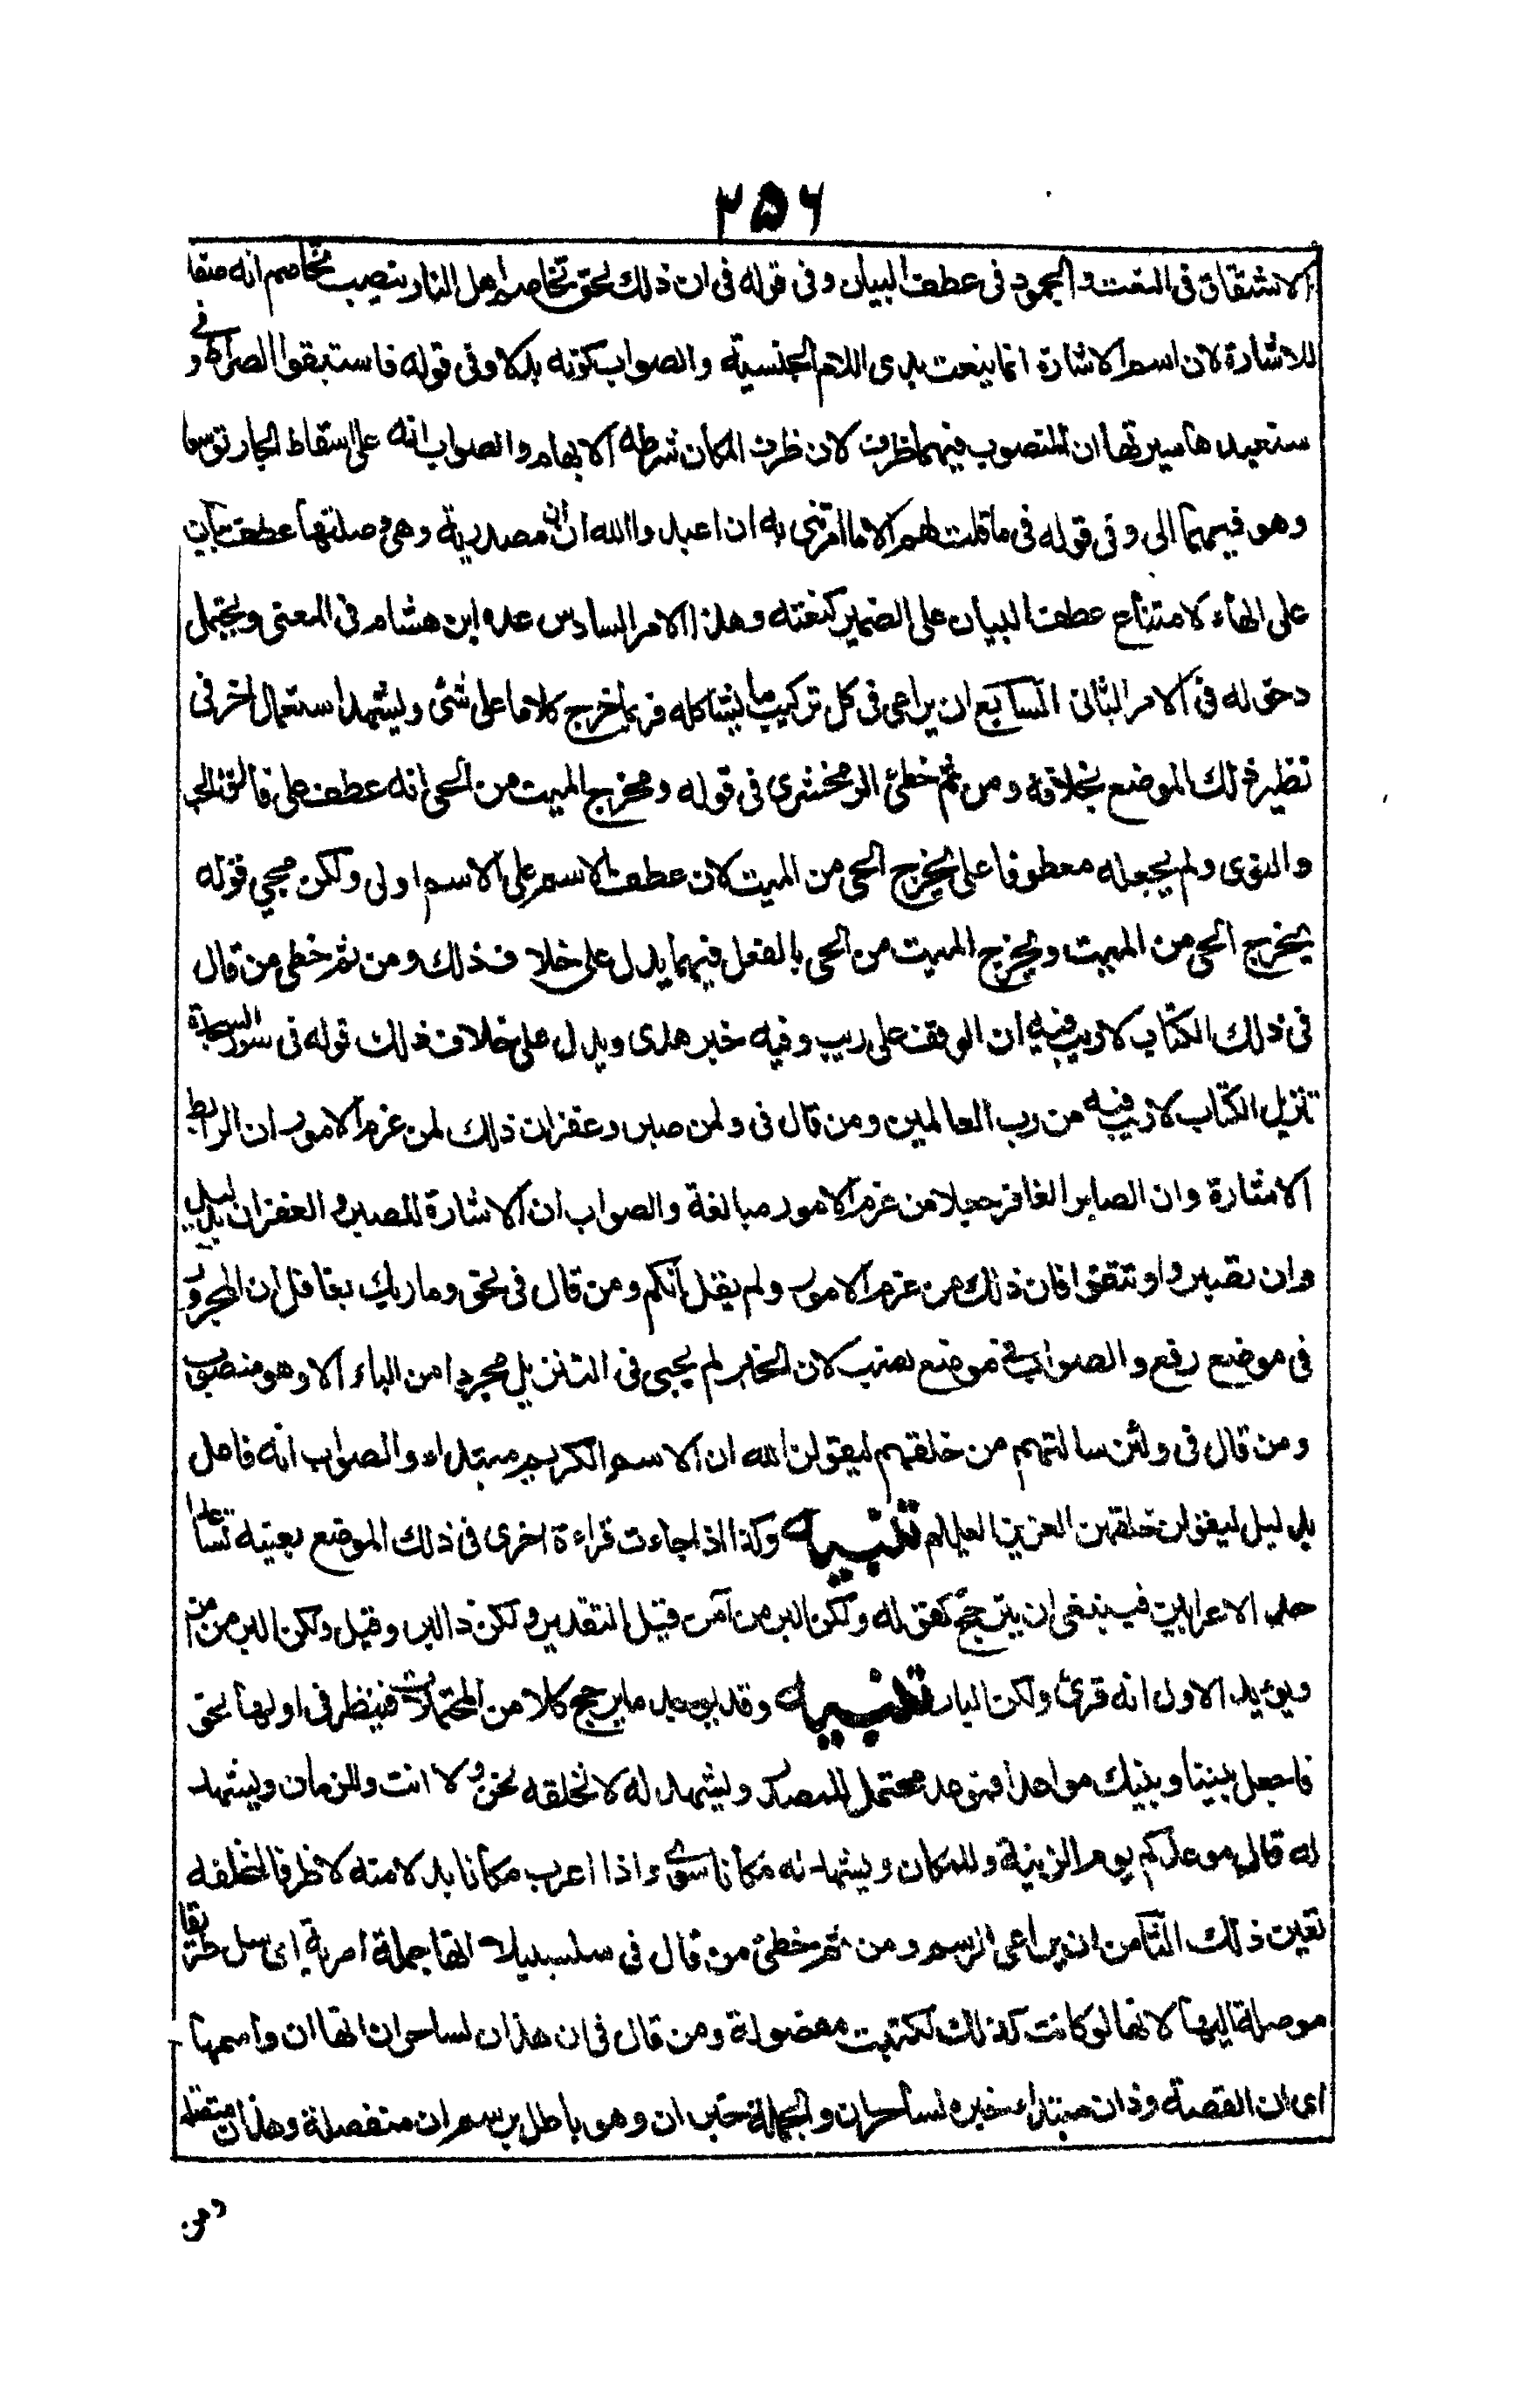 ٢٥٦
الاشتقاق فى النعت والجمود فى عطف البيان وفى قوله فى ان ذلك لحق تخاصم اهل النار بنصب تخاصم انه صفة
للاشارة لان اسم الاشارة انما ينعت بذى اللام الجنسية والصواب كونه بدلا وفى قوله فاستبقوا الصراط وفى
سنعيدها سيرتها ان المنصوب فيهما ظرف لان ظرف المكان شرطه الابهام والصواب انه على اسقاط الجار توسعا
وهو فيهما الى وفى قوله فى ما قلت لهم الا ما امرتنى به ان اعبدوا الله ان ان مصدرية وهى وصلتها عطف بيان
على الهاء لامتناع عطف البيان على الضمير كنعته وهذا الامر السادس عده ابن هشام فى المغنى ويحتمل
دخوله فى الامر الثانى السابع ان يراعى فى كل تركيب ما يشاكله فربما خرج كلاما على شئ ويشهد استعمال اخر فى
نظير ذلك الموضع بخلافه ومن ثم خطئ الزمخشرى فى قوله ومخرج الميت من الحى انه عطف على فالق الحب
والنوى ولم يجعله معطوفا على يخرج الحى من الميت لان عطف الاسم على الاسم اولى ولكن مجيئ قوله
يخرج الحى من الميت ويخرج الميت من الحى بالفعل فيهما يدل على خلاف ذلك ومن ثم خطئ من قال
فى ذلك الكتاب لا ريب فيه ان الوقف على ريب وفيه خبر هدى ويدل على خلاف ذلك قوله فى سورة السجدة
تنزيل الكتاب لا ريب فيه من رب العالمين ومن قال فى ولمن صبر وغفر ان ذلك لمن عزم الامور ان الرابط
الاشارة وان الصابر الغافر جعلا من عزم الامور مبالغة والصواب ان الاشارة للصبر والغفران بدليل
وان تصبروا وتتقوا فان ذلك من عزم الامور ولم يقل انكم ومن قال فى نحو وما ربك بغافل ان المجرور
فى موضع رفع والصواب فى موضع نصب لان الخبر لم يجئ فى التنزيل مجردا من الباء الا وهو منصوب
ومن قال فى ولئن سالتهم من خلقهم ليقولن الله ان الاسم الكريم مبتداء والصواب انه فاعل
بدليل ليقولن خلقهن العزيز العليم تنبيه وكذا اذا جاءت قراءة اخرى فى ذلك الموضع بعينه تساعد
احد الاعرابين فينبغى ان يترجح كقوله ولكن البر من آمن قيل التقدير ولكن ذا البر وقيل ولكن البر بر من آمن
ويؤيد الاول انه قرئ ولكن البار تنبيه وقد يوجد ما يرجح كلا من المحتملات فينظر فى اولها نحو
فاجعل بيننا وبينك موعدا فموعد محتمل للمصدر ويشهد له لا نخلفه نحن ولا انت وللزمان ويشهد
له قال موعدكم يوم الزينة وللمكان ويشهد له مكانا سوى واذا اعرب مكانا بدلا منه لا ظرفا لنخلفه
تعين ذلك الثامن ان يراعى الرسم ومن ثم خطئ من قال فى سلسبيلا انها جملة امرية اى سل طريقا
موصلة اليها لانها لو كانت كذلك لكتبت مفصولة ومن قال فى ان هذان لساحران انها ان واسمها
اى ان القصة وذان مبتداء خبره لساحران والجملة خبر ان وهو باطل برسم ان منفصلة وهذان متصلة
ومن